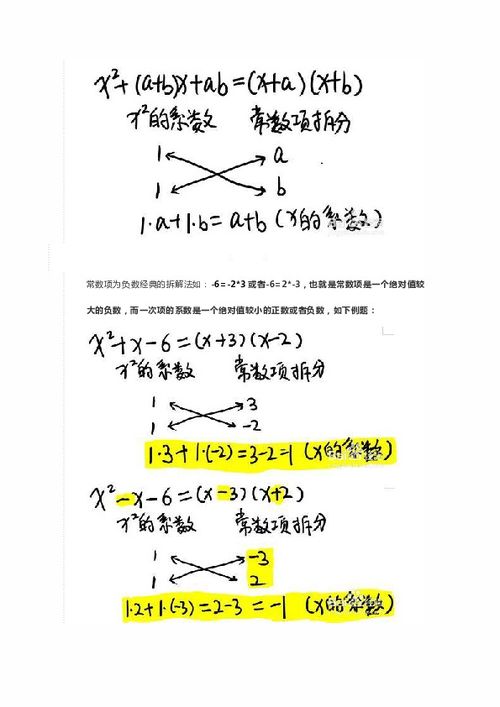 x²+(a+b)x+ab=(x+a)(x+b)
x²的系数 常数项拆分
1 a
1 b
1·a+1·b=a+b (x的系数)
常数项为负数经典的拆解法如：-6=-2*3 或者-6=2*-3，也就是常数项是一个绝对值较
大的负数，而一次项的系数是一个绝对值较小的正数或者负数，如下例题：
x²+x-6=(x+3)(x-2)
x²的系数 常数项拆分
1 3
1 -2
1·3+1·(-2)=3-2=1 (x的系数)
x²-x-6=(x-3)(x+2)
x²的系数 常数项拆分
1 -3
1 2
1·2+1·(-3)=2-3=-1 (x的系数)